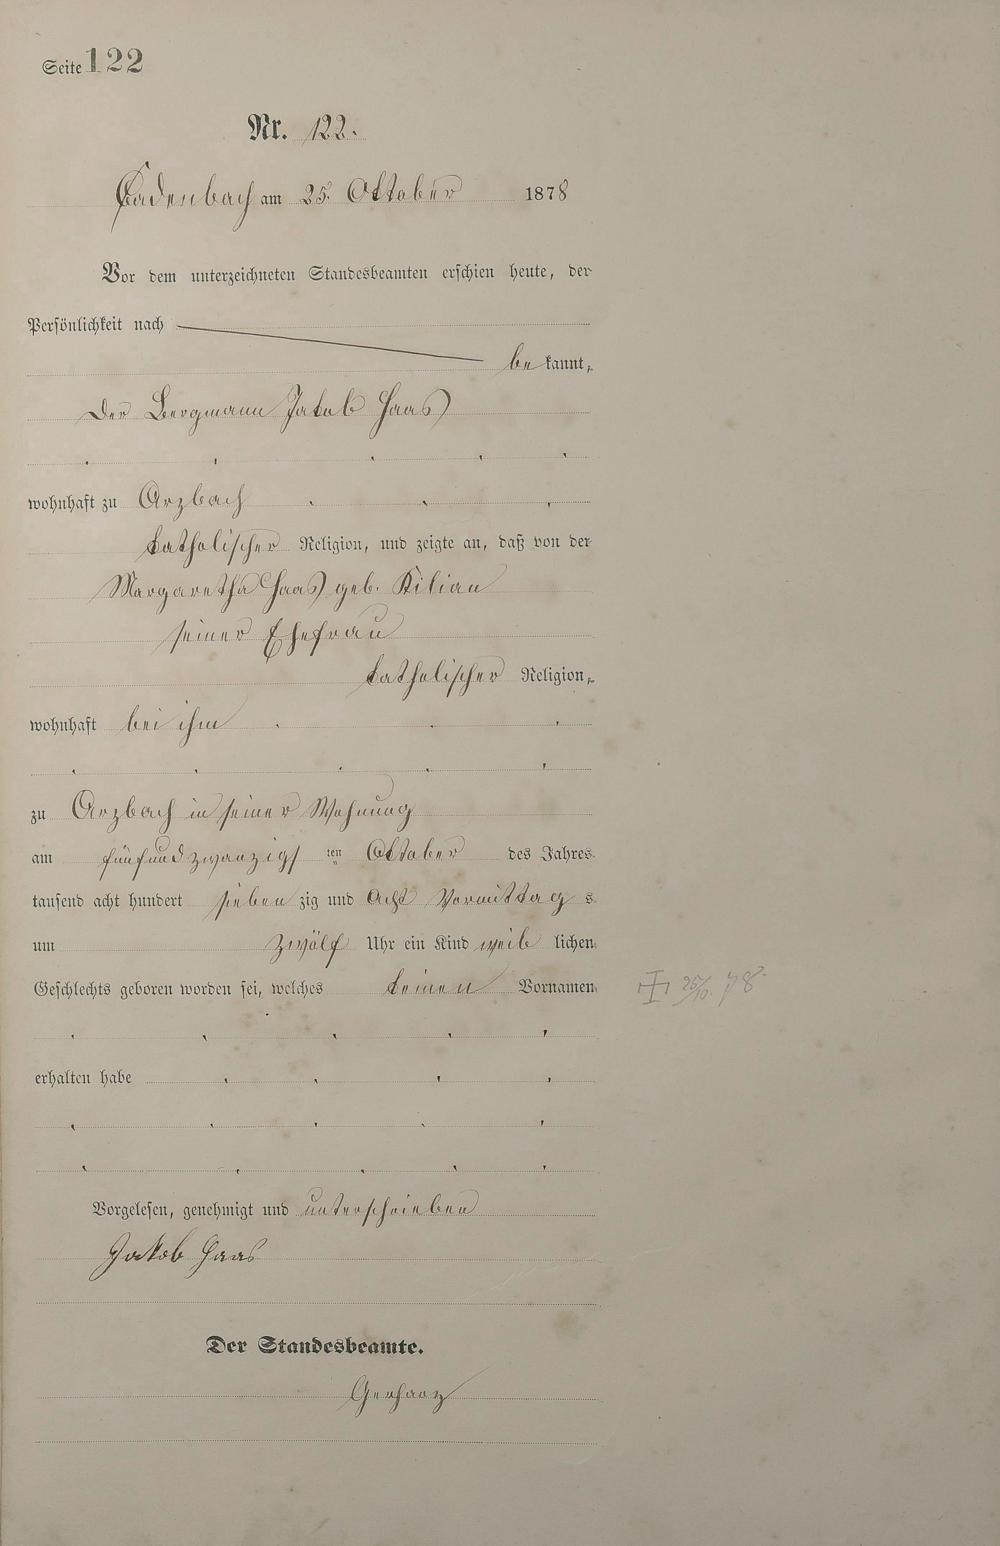 Seite 122
Nr. 122.
Cadenbach am 25. Oktober 1878
Vor dem unterzeichneten Standesbeamten erschien heute, der
Persönlichkeit nach
be kannt,
Der Bergmann Jakob Haas
wohnhaft zu Arzbach
katholischer Religion, und zeigte an, daß von der
Margaretha Haas geb. Kilian
seiner Ehefrau
katholischer Religion,
wohnhaft bei ihm
zu Arzbach in seiner Wohnung
am fünfundzwanzigs ten Oktober des Jahres
tausend acht hundert sieben zig und acht Vormittag s
um zwölf Uhr ein Kind weib lichen
Geschlechts geboren worden sei, welches keinen Vornamen
25/10. 78.
erhalten habe
Vorgelesen, genehmigt und unterschrieben
Jakob Haas
Der Standesbeamte.
Gerharz